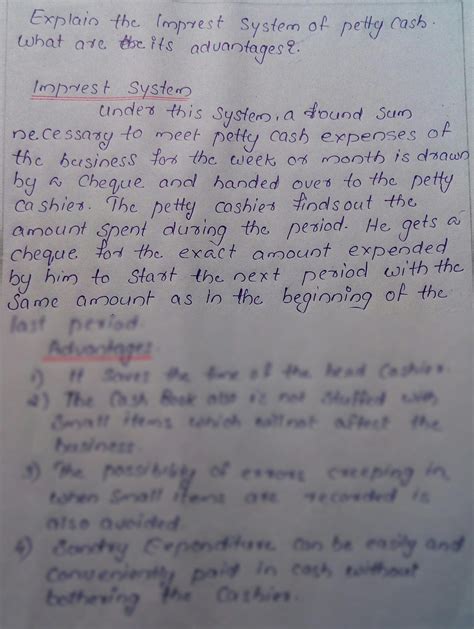 Explain the Imprest System of petty cash.
What are the its advantages?
Imprest System
Under this system, a round sum
necessary to meet petty cash expenses of
the business for the week or month is drawn
by a cheque and handed over to the petty
cashier. The petty cashier finds out the
amount spent during the period. He gets a
cheque for the exact amount expended
by him to start the next period with the
same amount as in the beginning of the
last period.
Advantages
1) It saves the time of the head cashier.
2) The Cash Book also is not stuffed with
small items which will not affect the
business.
3) The possibility of errors creeping in
when small items are recorded is
also avoided
4) Sundry Expenditure can be easily and
conveniently paid in cash without
bothering the Cashier.